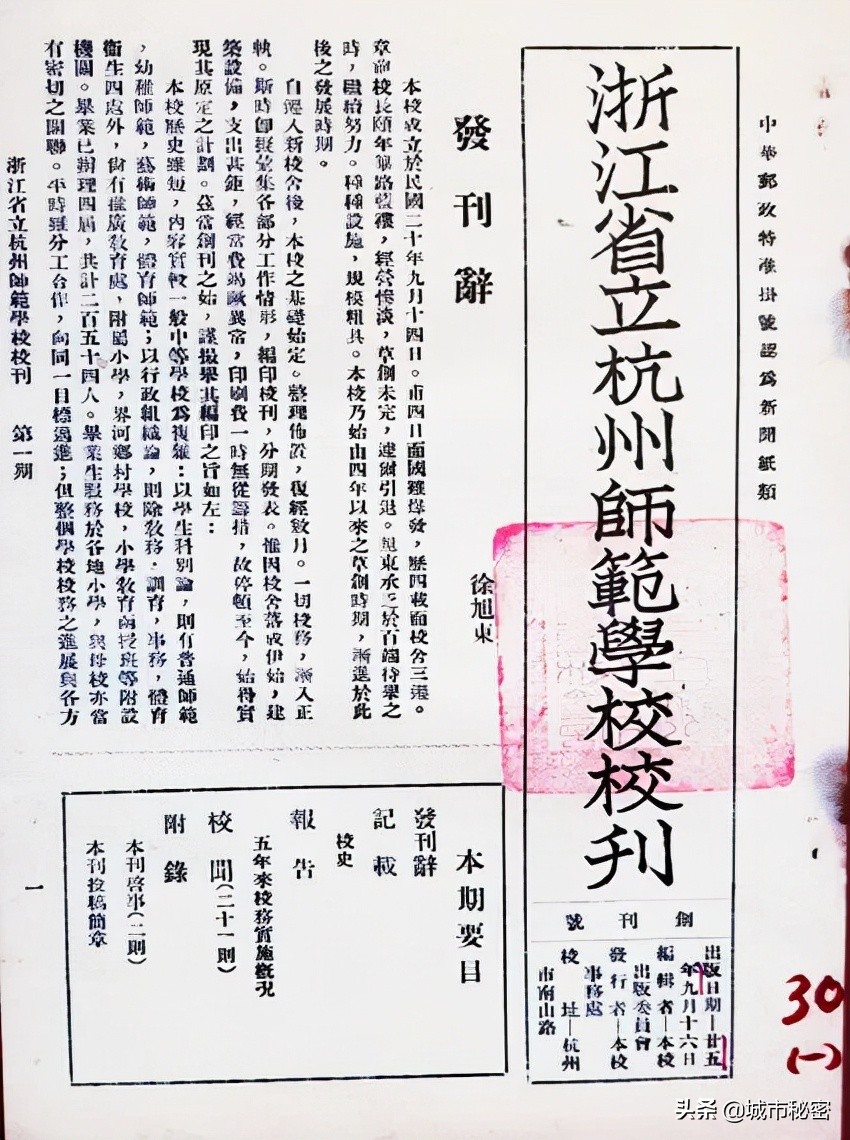 中華郵政特准掛號認爲新聞紙類
浙江省立杭州師範學校校刊
創刊號
出版日期—廿五
年九月十六日
編輯者—本校
出版委員會
發行者—本校
事務處
校址—杭州
市南山路
發刊辭
徐旭東
本校成立於民國二十年九月十四日。甫四日而國難爆發,歷四載而校舍三遷。
章前校長頤年篳路藍褸,經營慘淡,草創未完,遽爾引退。旭東承乏於百端待舉之
時,繼續努力。種種設施,規模粗具。本校乃始由四年以來之草創時期,漸進於此
後之發展時期。
自遷入新校舍後,本校之基礎始定。整理佈置,復經數月。一切校務,漸入正
軌。斯時卽擬彙集各部分工作情形,編印校刊,分期發表。惟因校舍落成伊始,建
築設備,支出甚鉅,經常費竭蹶異常,印刷費一時無從籌措,故停頓至今,始得實
現其原定之計劃。茲當創刊之始,謹撮舉其編印之旨如左:
本校歷史雖短,內容實較一般中等學校爲複雜:以學生科別論,則有普通師範
,幼稚師範,藝術師範,體育師範;以行政組織論,則除敎務,訓育,事務,體育
衞生四處外,尙有推廣敎育處,附屬小學,界河鄉村學校,小學敎育函授班等附設
機關。畢業已辦理四屆,共計二百五十四人。畢業生服務於各地小學,與母校亦當
有密切之關聯。平時雖分工合作,向同一目標邁進;但整個學校校務之進展與各方
浙江省立杭州師範學校校刊 第一期
一
本期要目
發刊辭
記載
校史
報告
五年來校務實施概況
校聞(二十一則)
附錄
本刊啓事(二則)
本刊投稿簡章
30
(一)
头条 @城市秘密